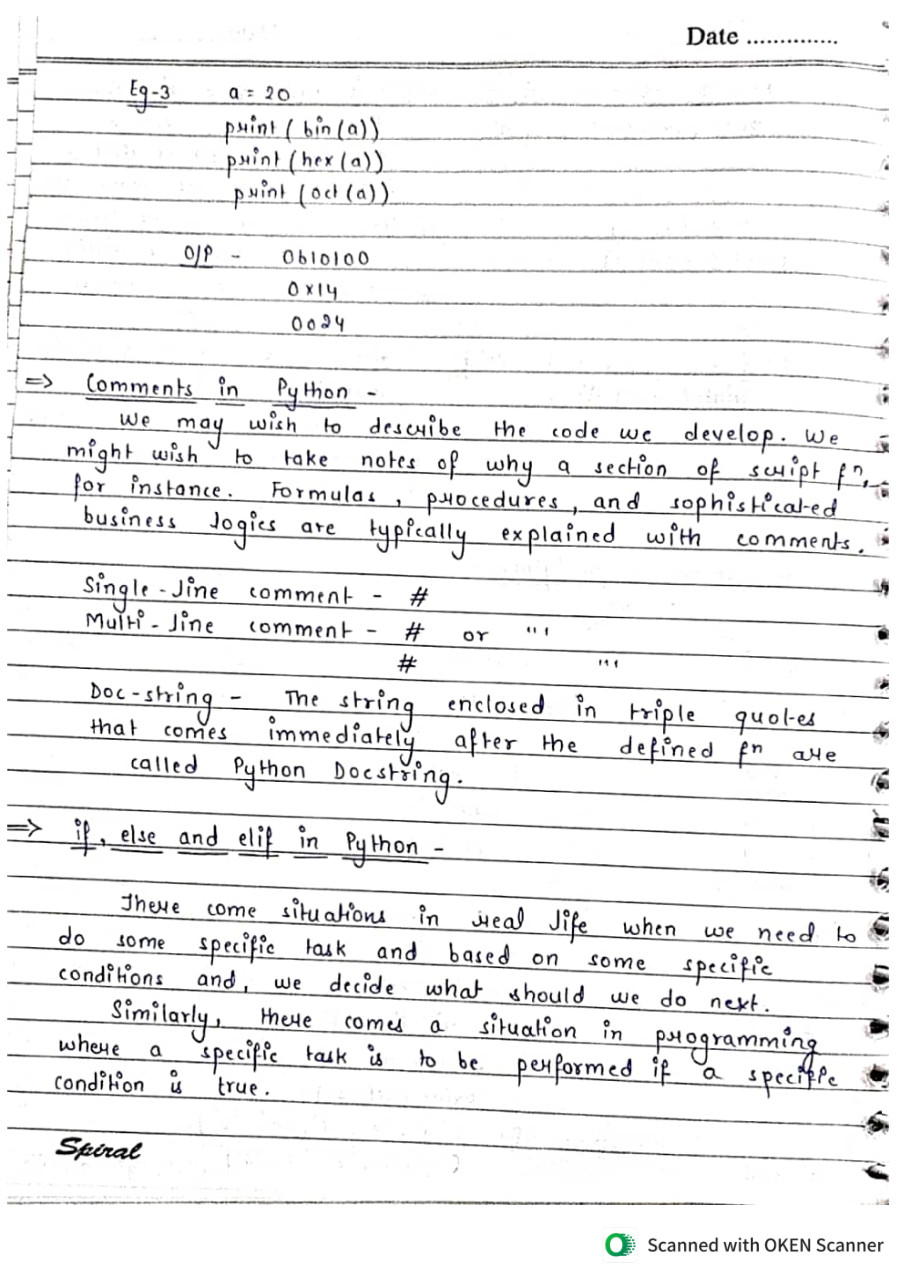 Date ..............
Eg-3 a = 20
print ( bin (a))
print (hex (a))
print (oct (a))
O/P - 0b10100
0x14
0o24
=> Comments in Python -
We may wish to describe the code we develop. We
might wish to take notes of why a section of script fn,
for instance. Formulas, procedures, and sophisticated
business logics are typically explained with comments.
Single-line comment - #
Multi-line comment - # or '''
# '''
Doc-string - The string enclosed in triple quotes
that comes immediately after the defined fn are
called Python Docstring.
=> if, else and elif in Python -
There come situations in real life when we need to
do some specific task and based on some specific
conditions and, we decide what should we do next.
Similarly, there comes a situation in programming
where a specific task is to be performed if a specific
condition is true.
Spiral
Scanned with OKEN Scanner